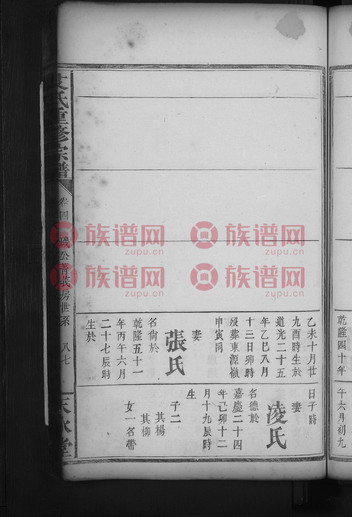 族谱网
zupu.cn
族谱网
zupu.cn
族谱网
zupu.cn
氏重修宗譜
卷四
房世系
八七
堂
乙未十月廿
九酉時生於
道光二十五
年乙巳八月
十三日卯時
歿葬東源嶺
申寅向
妻
張氏
名尚於
乾隆五十一
年丙午六月
二十七辰時
生於
日子時
妻
凌氏
名德於
嘉慶二十四
年己卯十二
月十九辰時
生
子二
其楊
其柳
女一名帶
乾隆四十年
午六月初九